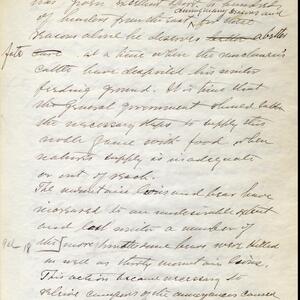 has given excellent sport
annoyance and
of hunters from the east & for these
reasons alone he deserves better a better
fate at a time when the ranchman's
cattle have despoiled his winter
feeding ground. It is time that
the general government should take
the necessary steps to supply this
noble game with food when
nature's supply is inadequate
or out of reach.
The mountain lions and bear have
increased to an undesirable extent
and last winter a number of
the more troublesome bears were killed
as well as thirty mountain lions.
This action became necessary to
relieve campers of the annoyances caused